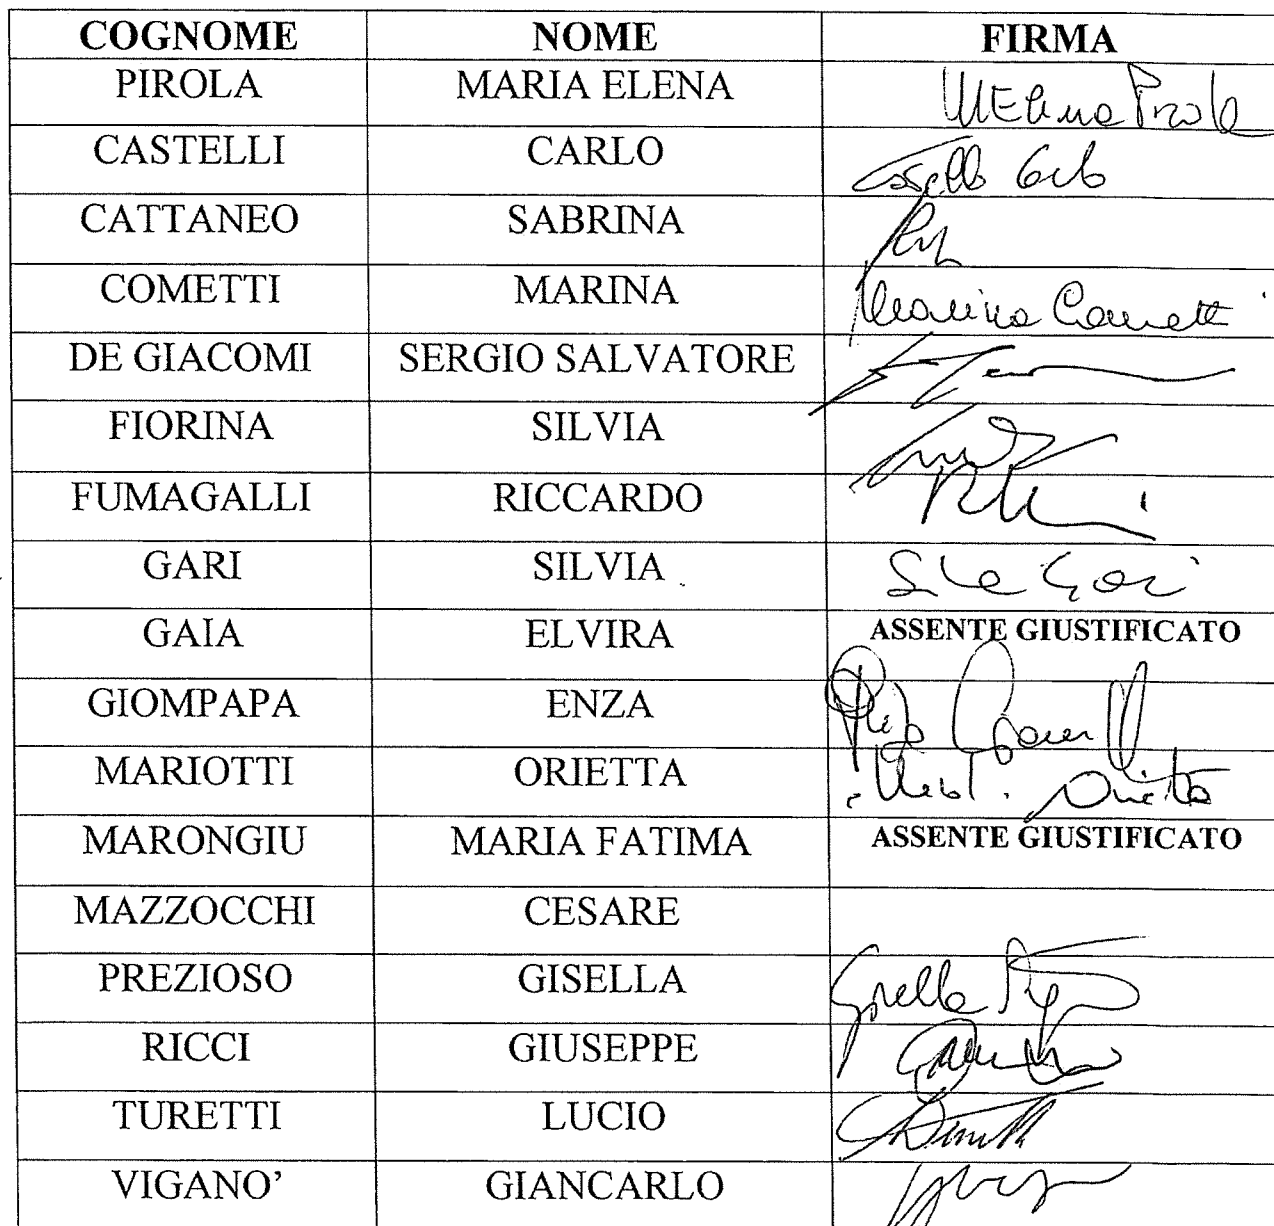 COGNOME NOME FIRMA
PIROLA MARIA ELENA MElena Pirola
CASTELLI CARLO Castelli Carlo
CATTANEO SABRINA
COMETTI MARINA Marina Cometti
DE GIACOMI SERGIO SALVATORE
FIORINA SILVIA
FUMAGALLI RICCARDO
GARI SILVIA Silvia Gari
GAIA ELVIRA ASSENTE GIUSTIFICATO
GIOMPAPA ENZA
MARIOTTI ORIETTA Orietta
MARONGIU MARIA FATIMA ASSENTE GIUSTIFICATO
MAZZOCCHI CESARE
PREZIOSO GISELLA Gisella
RICCI GIUSEPPE
TURETTI LUCIO
VIGANO’ GIANCARLO